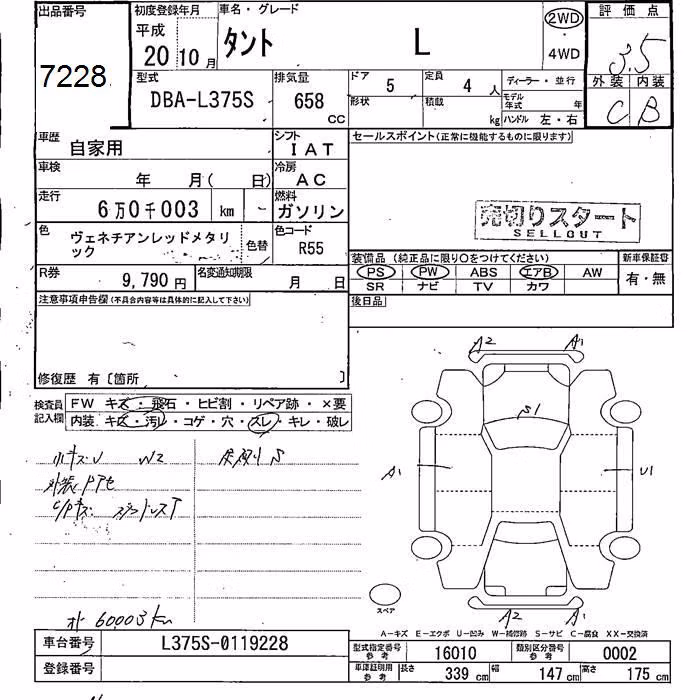 出品番号
7228
初度登録年月
平成
20 10月
車名・グレード
タント L
2WD
・
4WD
評価点
3.5
外装 内装
C B
型式
DBA-L375S
排気量
658
CC
ドア 5
定員 4 人
形状
積載 kg
ディーラー・並行
モデル年式 年
ハンドル 左・右
車歴
自家用
シフト
IAT
セールスポイント(正常に機能するものに限ります)
車検
年 月( 日)
冷房
AC
走行
6万0千003 km
燃料
ガソリン
売切りスタート
SELLOUT
色
ヴェネチアンレッドメタリ
ック
色替
色コード
R55
装備品 (純正品に限り○をつけてください)
新車保証書
PS PW ABS エアB AW
有・無
SR ナビ TV カワ
R券
9,790円
名変通知期限
月 日
後日品
注意事項申告欄(不具合内容等は具体的に記入して下さい)
修復歴 有〔箇所 〕
検査員
記入欄
FW キズ・飛石・ヒビ割・リペア跡・×要
内装 キズ・汚レ・コゲ・穴・スレ・キレ・破レ
小キズU W2
60003km
A2 A1
S1
A1
U1
A2 A1
スペア
A-キズ E-エクボ U-凹み W-補修跡 S-サビ C-腐食 XX-交換済
車台番号
L375S-0119228
登録番号
型式指定番号
参考
16010
類別区分番号
参考
0002
車庫証明用
参考
長さ 339 cm
幅 147 cm
高さ 175 cm